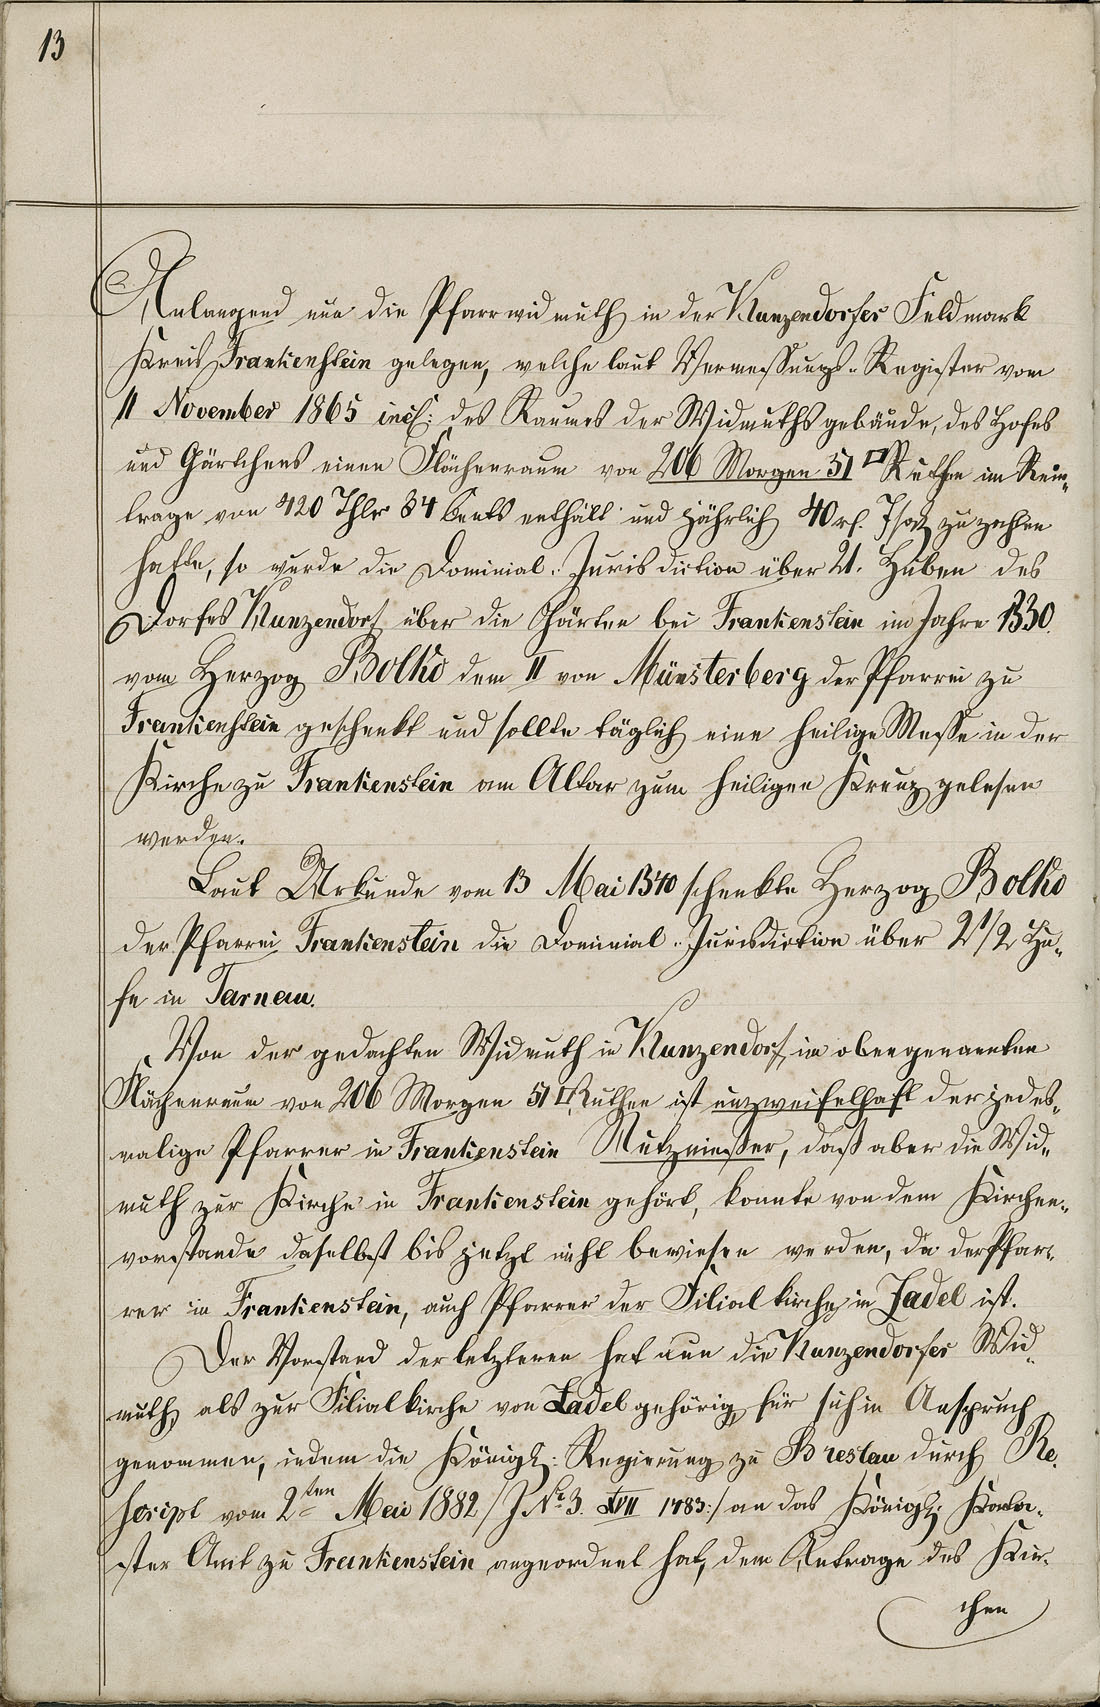 13
Anlangend nun die Pfarrwidmuth in der Kunzendorfer Feldmark
Kreis Frankenstein gelegen, welche laut Vermessungs-Register vom
11 November 1865 incl: des Raumes der Widmuthsgebäude, des Hofes
und Gärtchens einen Flächenraum von 206 Morgen 51 □Ruthen im Rein-
trage von 420 Thlr 84 Cents enthält und jährlich 40 rf. zu zahlen
hatte, so wurde die Dominial-Jurisdiction über 21. Huben des
Dorfes Kunzendorf über die Gärten bei Frankenstein im Jahre 1330.
vom Herzog Bolko dem II von Münsterberg der Pfarrei zu
Frankenstein geschenkt und sollte täglich eine heilige Messe in der
Kirche zu Frankenstein am Altar zum heiligen Kreuz gelesen
werden.
Laut Urkunde vom 13 Mai 1340 schenkte Herzog Bolko
der Pfarrei Frankenstein die Dominial-Jurisdiction über 2 1/2 Hu-
fe in Tarnau.
Von der gedachten Widmuth in Kunzendorf im obengenannten
Flächenraum von 206 Morgen 51 □Ruthen ist unzweifelhaft der jedes-
malige Pfarrer in Frankenstein Nutznießer, daß aber die Wid-
muth zur Kirche in Frankenstein gehört, konnte von dem Kirchen-
vorstande daselbst bis jetzt nicht bewiesen werden, da der Pfar-
rer in Frankenstein, auch Pfarrer der Filialkirche in Zadel ist.
Der Vorstand der letzteren hat nun die Kunzendorfer Wid-
muth, als zur Filialkirche von Zadel gehörig, für sich in Anspruch
genommen, indem die Königl: Regierung zu Breslau durch Re-
script vom 2ten Mai 1882 /: J № 3. XVII 1783:/ an das Königl: Kata-
ster Amt zu Frankenstein angeordnet hat, dem Antrage des Kir-
chen